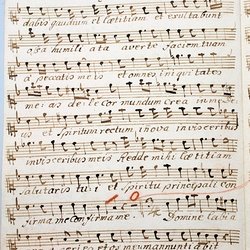 dabis gaudium et lætitiam et exultabunt
ossa humiliata averte faciem tuam
a peccatis meis et omnes iniquitates
me: as dele Cor mundum Crea in me De:
us et Spiritum rectum inova in visceribus
in visceribus meis Redde mihi Lætitiam
Salutaris tu: i et Spiritu principali con
firma me confirma me. Domine Labia
aperies et os meum annuntiabit